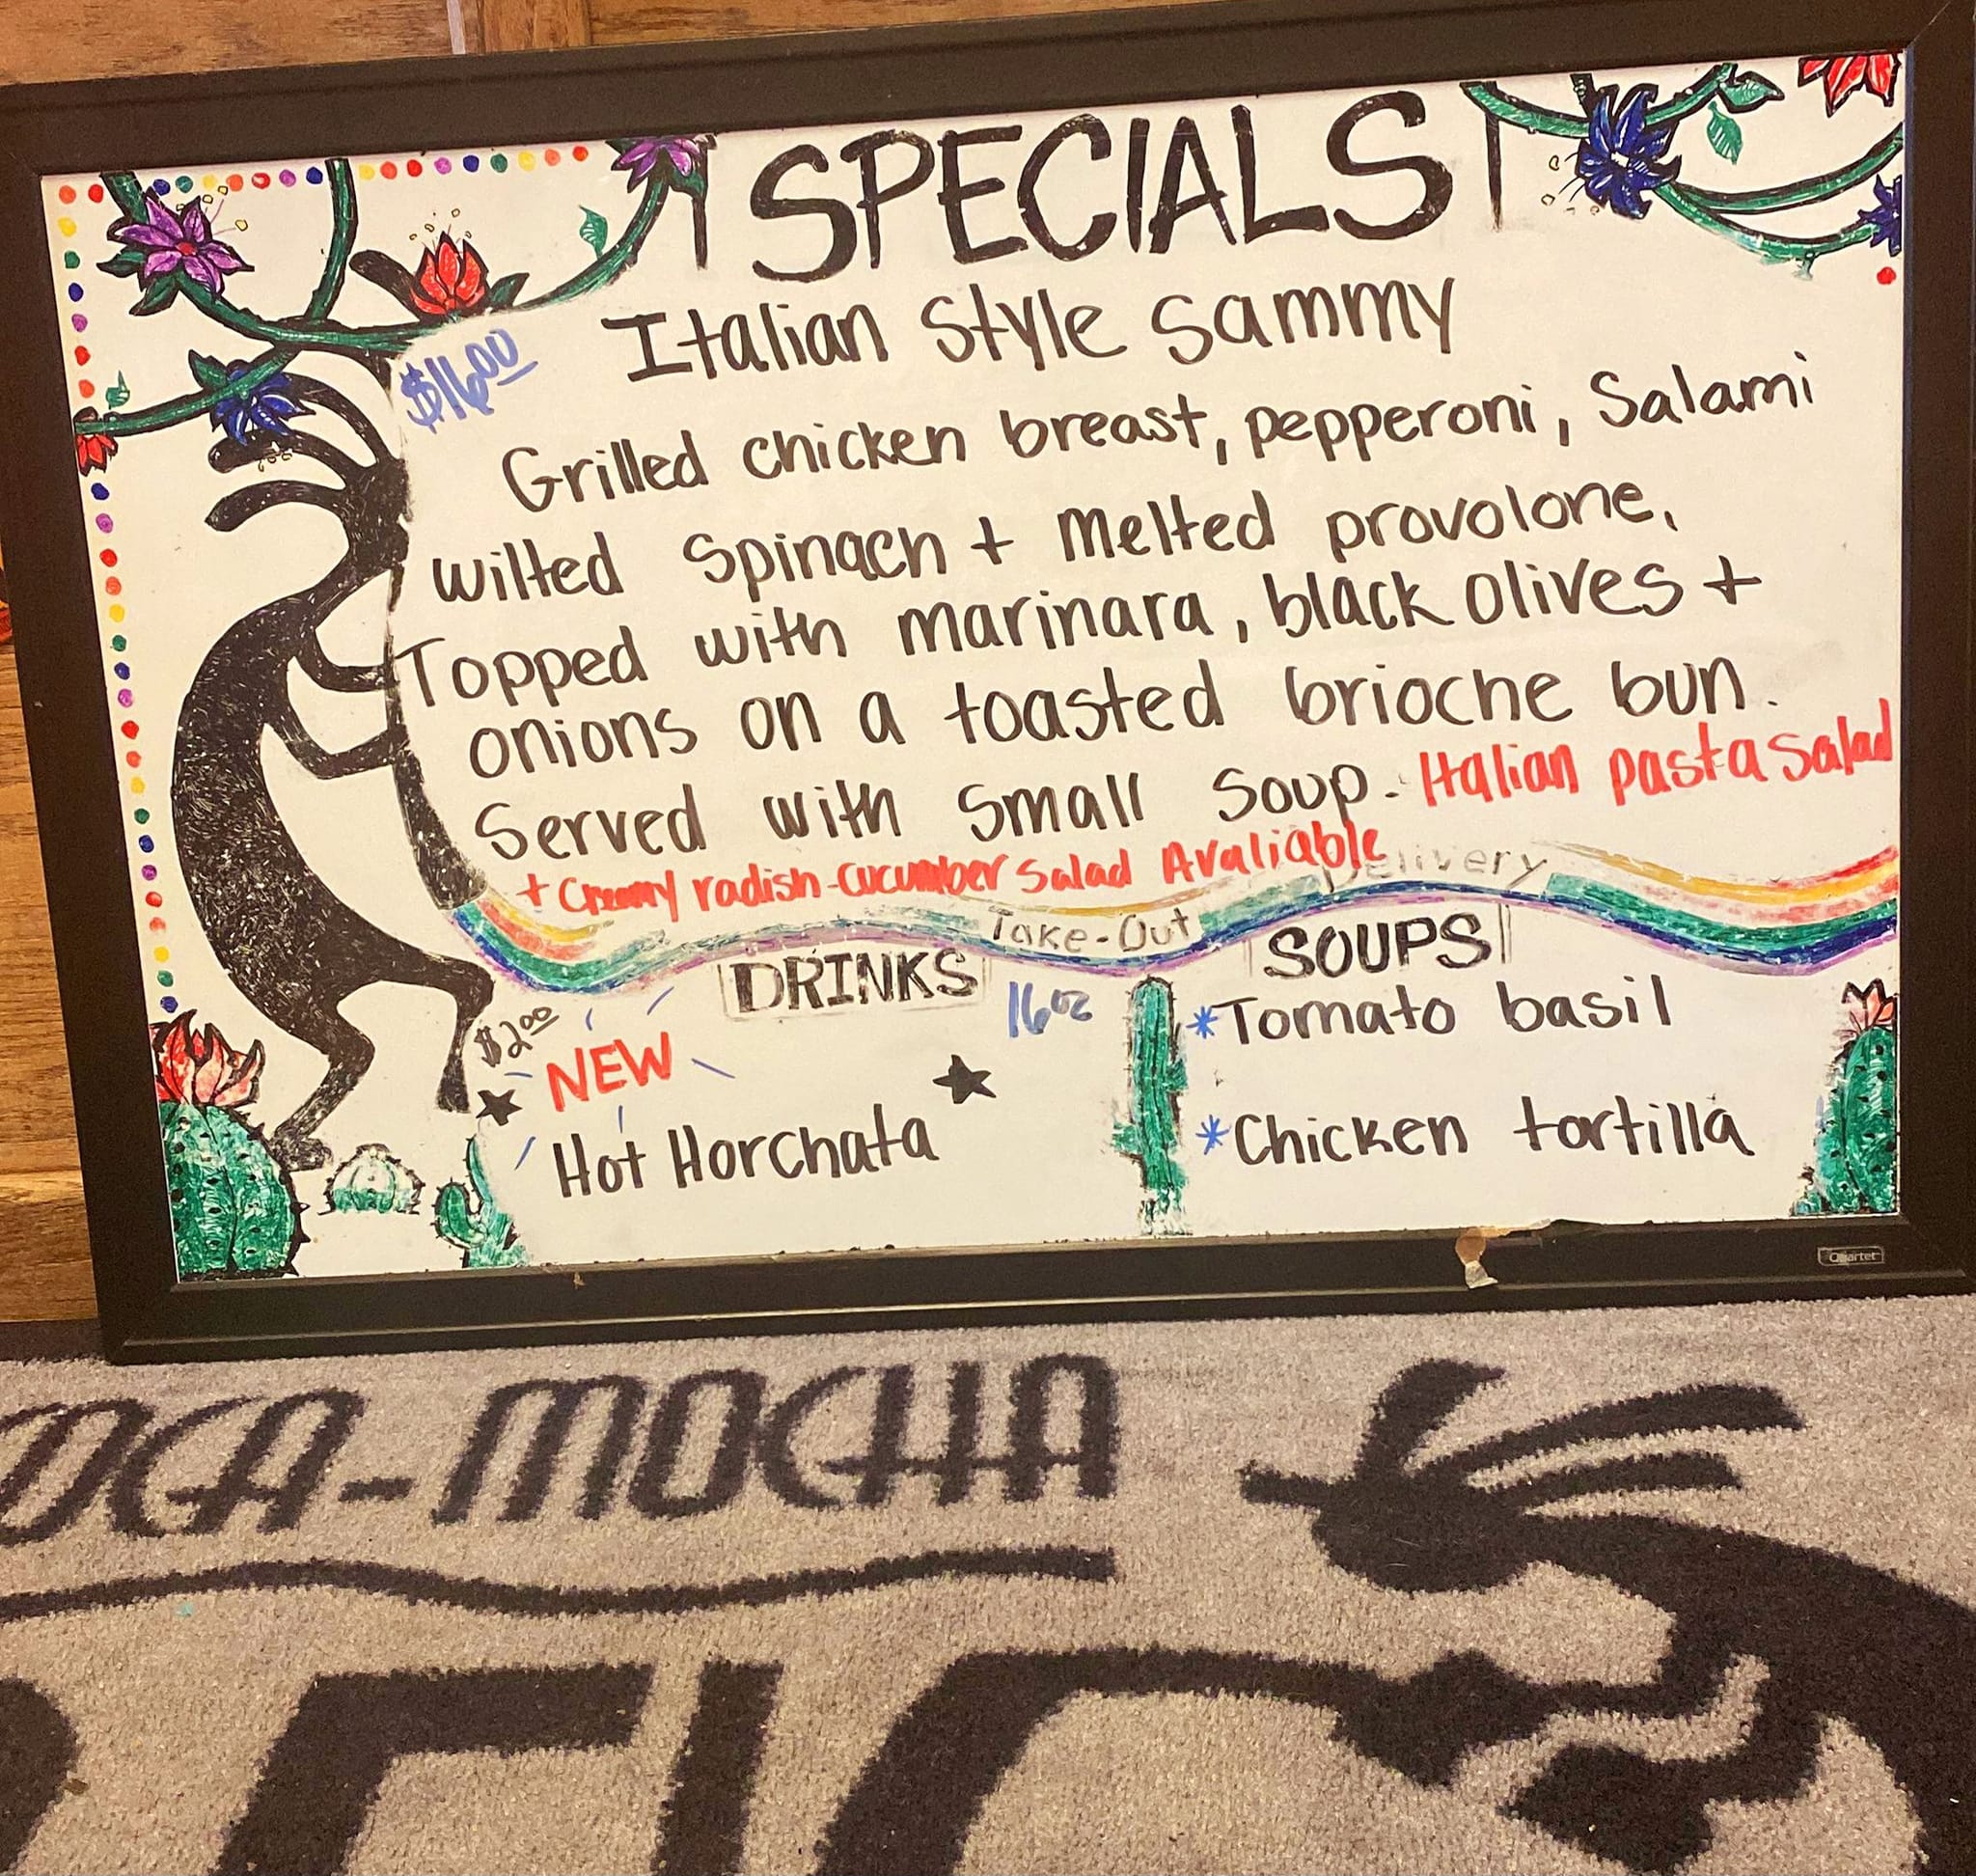 SPECIALS
$16.00
Italian Style Sammy
Grilled chicken breast, pepperoni, Salami
wilted Spinach + Melted provolone,
Topped with marinara, black olives +
onions on a toasted brioche bun.
Served with Small Soup. Italian pasta Salad
+ Creamy radish-cucumber Salad Avaliable
Delivery
Take-Out
DRINKS
16oz
$2.00
NEW
Hot Horchata
SOUPS
*Tomato basil
*Chicken tortilla
Quartet
-MOCHA